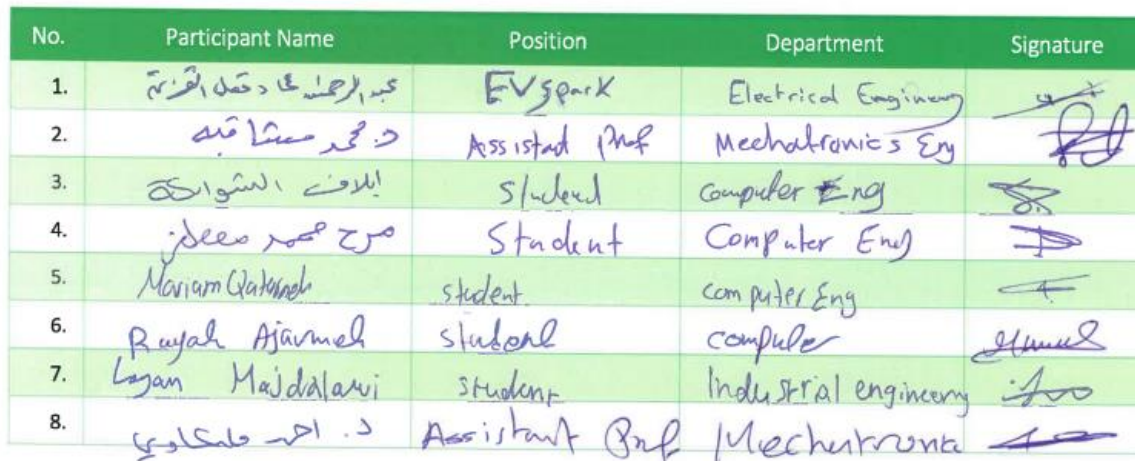 No. Participant Name Position Department Signature
1. عبد الرحمن EVspark Electrical Engineery
2. د. محمد مشاقبه Assistad Prof Mechatronics Eng
3. ايلاف الشوابكة Student computer Eng
4. مرح محمد Student Computer Eng
5. Mariam Qatarneh student computer Eng
6. Rayah Ajarmeh student compute
7. Layan Majdalawi student Industrial engineery
8. د. احمد ملكاوي Assistant Prof Mechatronic